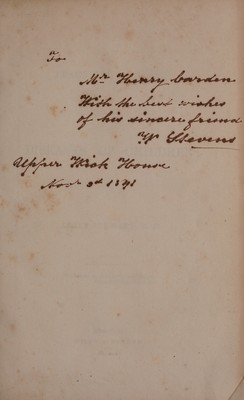 To
Mr Henry Carden
With the best wishes
of his sincere friend
W Stevens
Upper Wick House
Novr 2d 1891